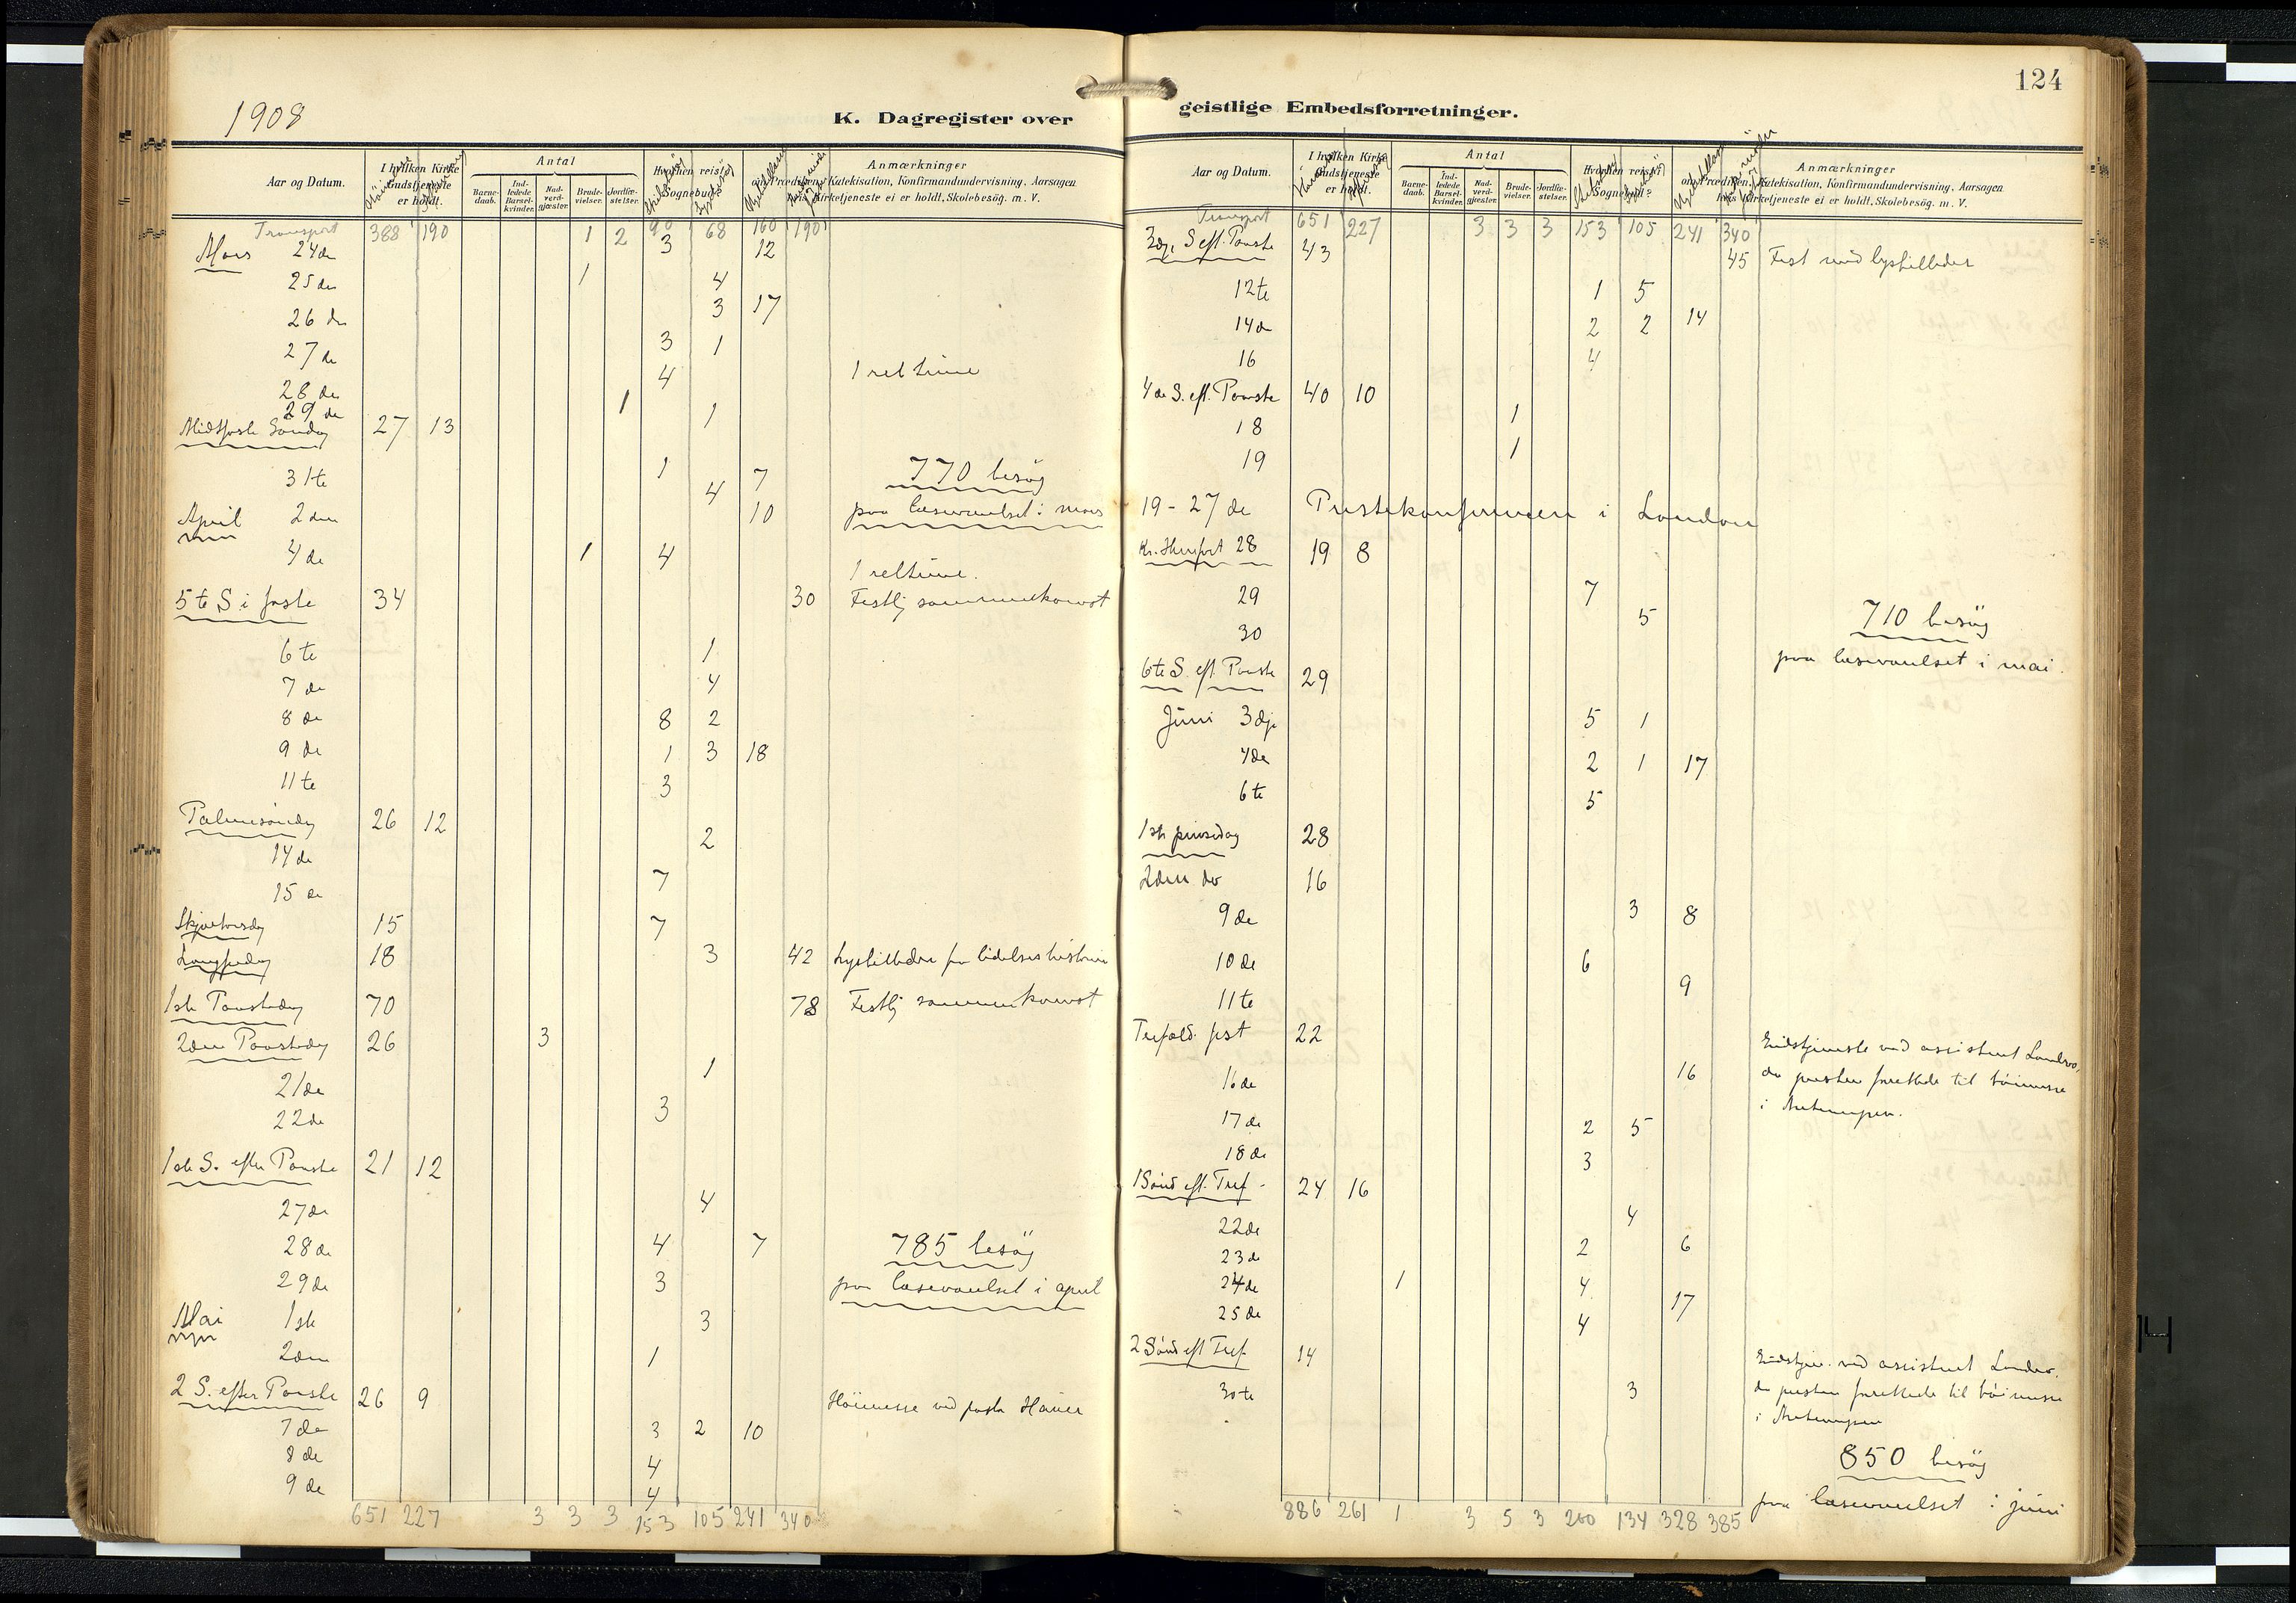 1908
K. Dagregister over
Aar og Datum. I hvilken Kirke Gudstjeneste er holdt. Antal Barnedaab. Indledede Barselkvinder. Nadverdgjæster. Brudevielser. Jordfæstelser. Hvorhen reist i Sognebud? Anmærkninger om Prædiken, Katekisation, Konfirmandundervisning, Aarsagen hvis Kirketjeneste ei er holdt, Skolebesög. m. V.
Transport 388 190 1 2 90 68 160 190
Mars 24de 3 12
25de 1 4
26de 3 17
27de 3 1
28de 4 1 reltime
29de 1 1
Midtfaste Søndag 27 13
31te 1 7 770 besøg
April 2den 4 10 paa læseværelset i mars
4de 1 4 1 reltime.
5te S. i faste 34 30 Festlig sammenkomst
6te 1
7de 4
8de 8 2
9de 1 3 18
11te 3
Palmesøndag 26 12
14de 2
15de 7
Skjærtorsdag 15 7
Langfredag 18 3 42 Lysbilleder fra lidelseshistorien
1ste Paaskedag 70 78 Festlig sammenkomst
2den Paaskedag 26 3
21de 1
22de 3
1ste S. efter Paaske 21 12
27de 4
28de 4 7 785 besøg
29de 3 paa læseværelset i april
Mai 1ste 3
2den 1
2 S. efter Paaske 26 9 Høimesse ved pastor
7de 3 2 10
8de 4
9de 4
651 227 3 3 3 153 105 241 340
124
geistlige Embedsforretninger.
Aar og Datum. I hvilken Kirke Gudstjeneste er holdt. Antal Barnedaab. Indledede Barselkvinder. Nadverdgjæster. Brudevielser. Jordfæstelser. Hvorhen reist i Sognebud? Anmærkninger om Prædiken, Katekisation, Konfirmandundervisning, Aarsagen hvis Kirketjeneste ei er holdt, Skolebesög. m. V.
Transport 651 227 3 3 3 153 105 241 340
3dje S. eft. Paaske 43 45 Fest med lysbilleder
12te 1 5
14de 2 2 14
16 4
4de S. eft. Paaske 40 10
18 1
19 1
19-27de Prestekonferencen i London
Kr. Himfart 28 19 8
29 7
30 5 710 besøg
paa læseværelset i mai.
6te S. eft. Paaske 29
Juni 3dje 5 1
4de 2 1 17
6te 5
1ste pinsedag 28
2den do 16
9de 3 8
10de 6
11te 9
Trefold. fest 22
Gudstjeneste ved assistent
16de 16 da presten forrettede til høimesse
i Antwerpen.
17de 2 5
18de 3
1 Sønd eft. Tref. 24 16
22de 4
23de 2 6
24de 1 4
25de 4 17
2 Sønd eft Tref. 14 Gudstjen. ved assistent
30te 3 da presten forrettede til høimesse
i Antwerpen
850 besøg
paa læseværelset i juni
886 261 1 3 5 3 200 134 328 385